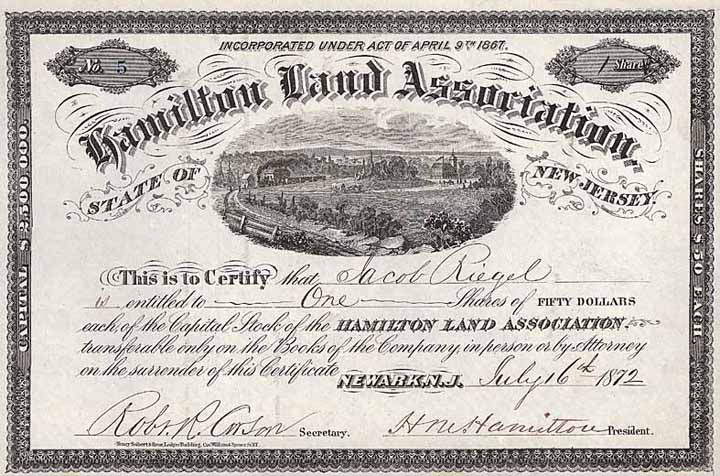 INCORPORATED UNDER ACT OF APRIL 9TH 1867.
No. 5
1 Share
Hamilton Land Association,
STATE OF NEW JERSEY.
CAPITAL $2,500,000.
SHARES $50 EACH.
This is to Certify that Jacob Riegel
is entitled to One Shares of FIFTY DOLLARS
each of the Capital Stock of the HAMILTON LAND ASSOCIATION,
transferable only on the Books of the Company, in person or by Attorney
on the surrender of this Certificate
NEWARK, N.J. July 16th 1872
Robt. R. Corson Secretary. H M Hamilton President.